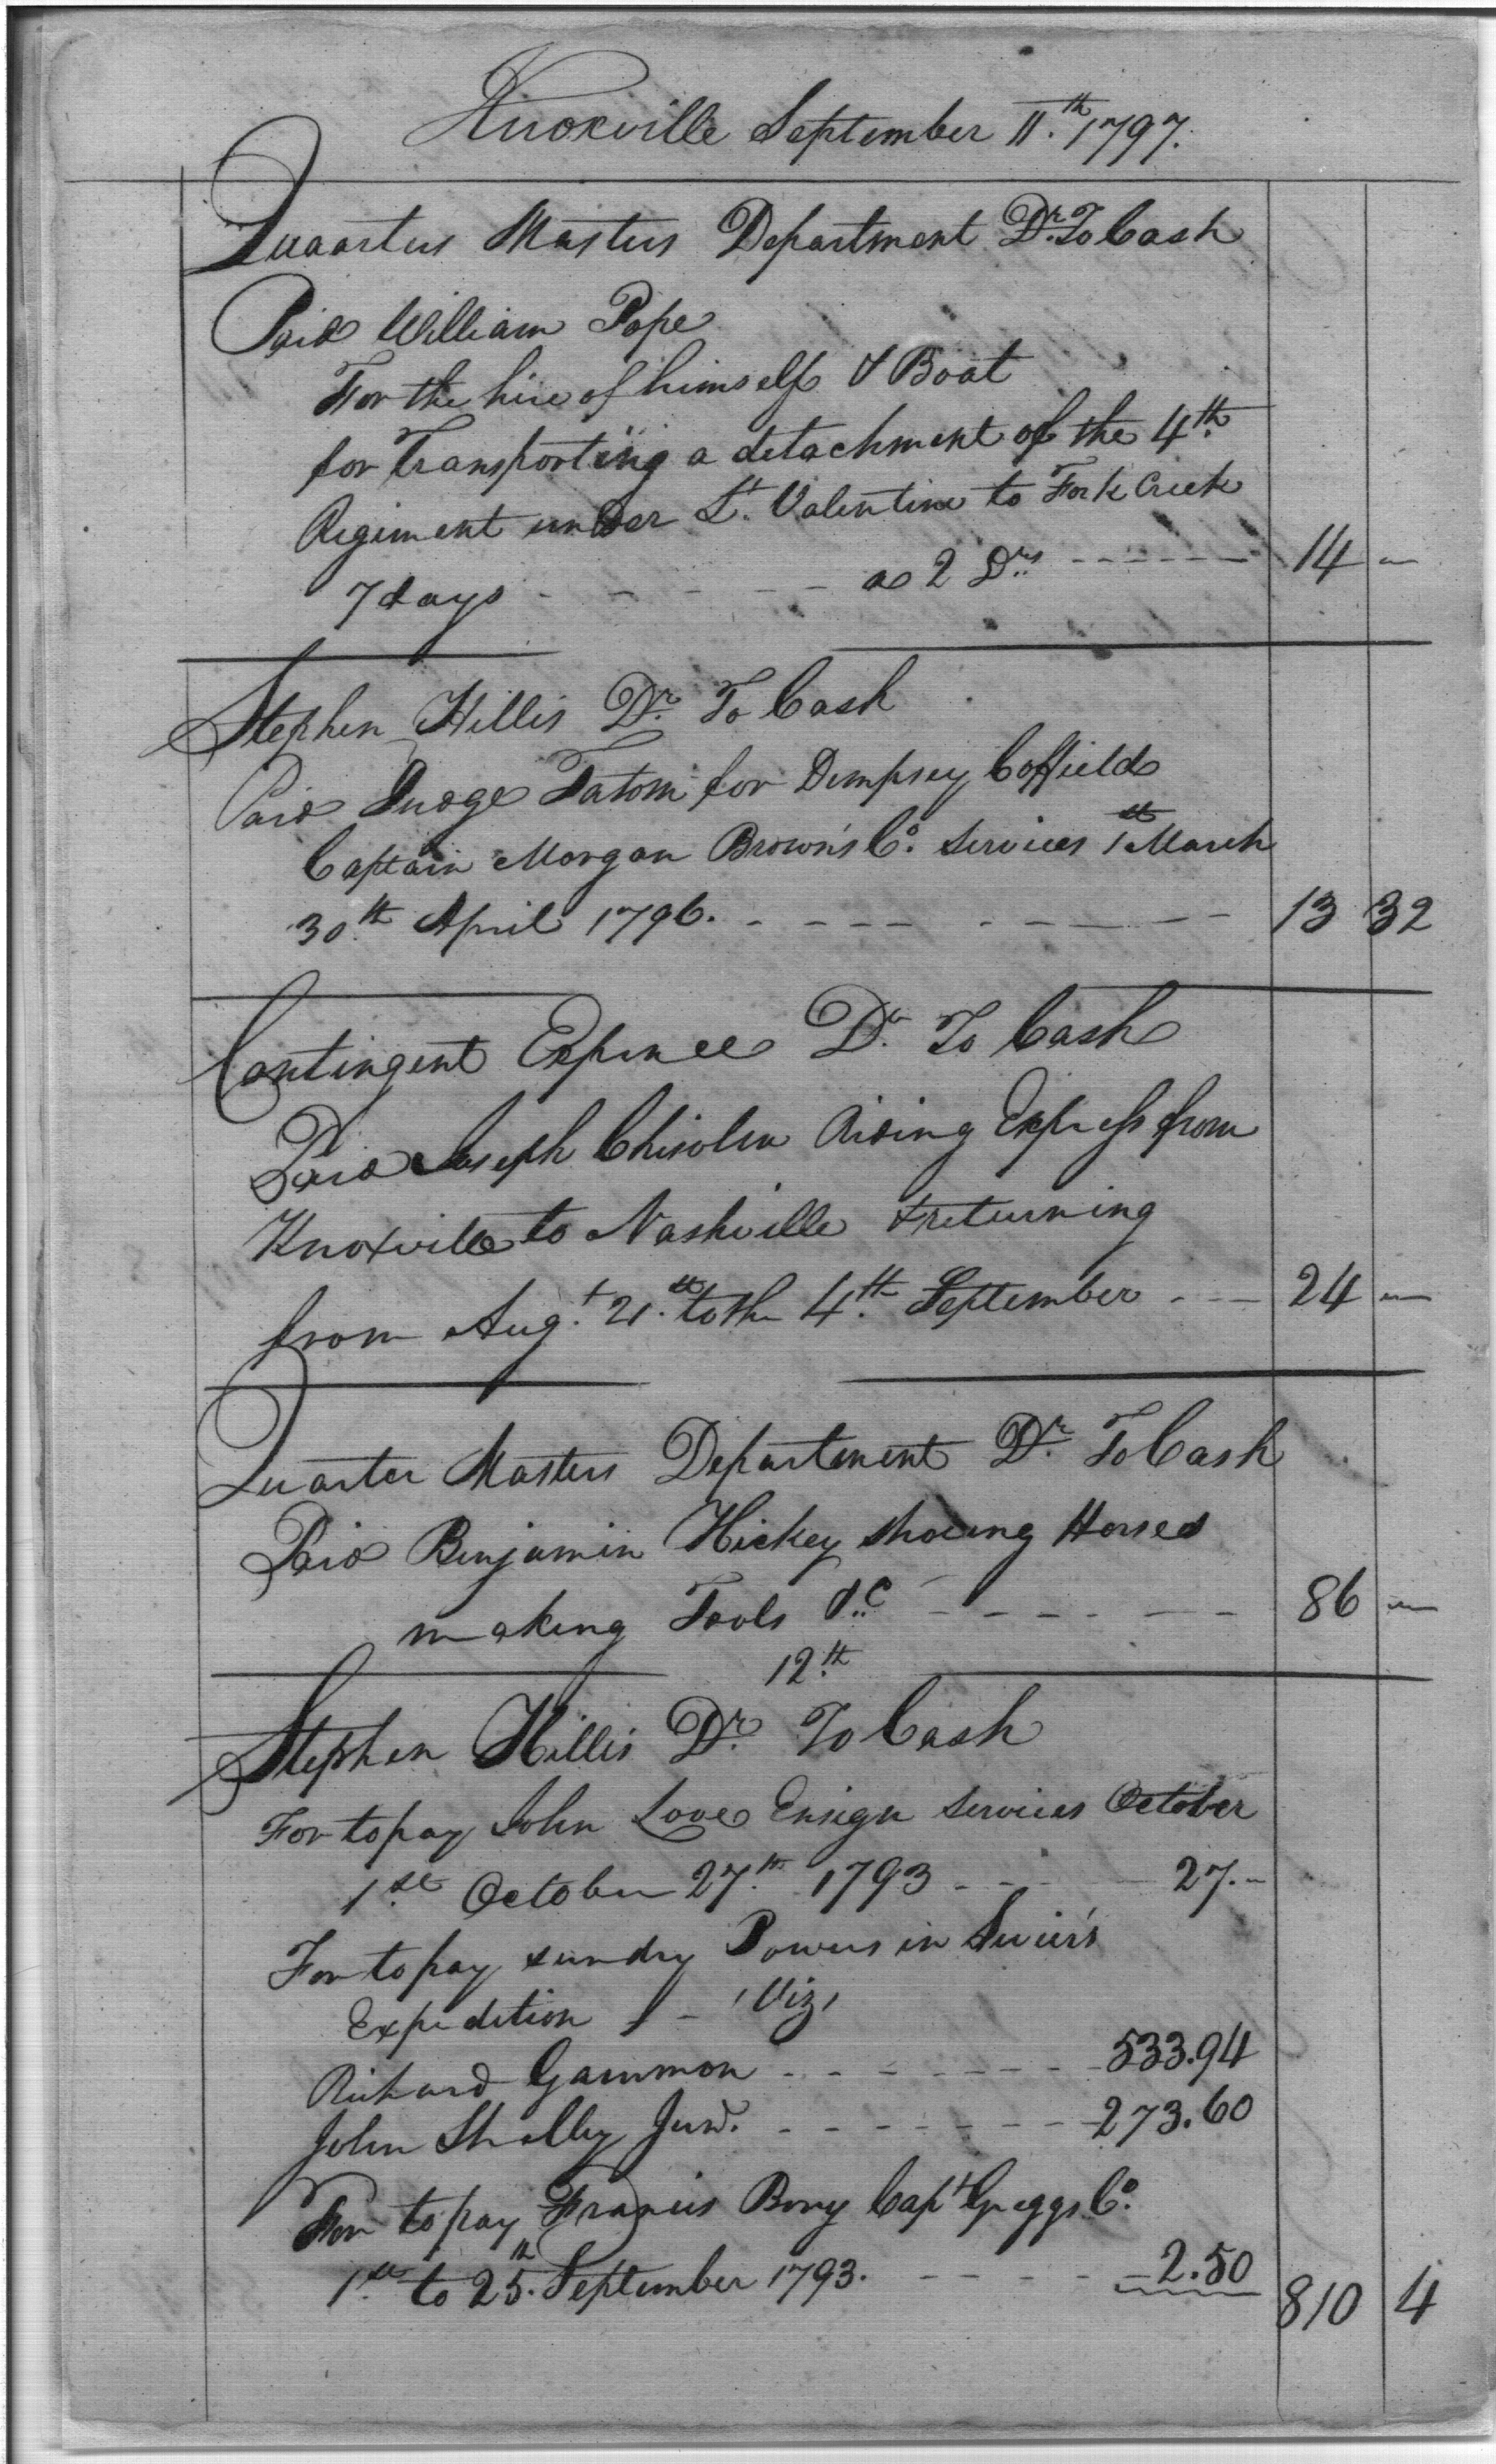 Knoxville September 11th. 1797.
Quaartus Masters Department Dr. To Cash
Paid William Pope
For the hire of himself & Boat
for Transporting a detachment of the 4th.
Regiment under Lt. Valentine to Fork Creek
7 days - - - - - a 2 Drs - - - - - - 14 —
Stephen Hillis Dr. To Cash
Paid Judge Tatom for Dempsey Coffield
Captain Morgan Brown's Co. Services 1st March
30th. April 1796. - - - - - - - - - 13 32
Contingent Expence Dr. To Cash
Paid Joseph Chisolm Riding Express from
Knoxville to Nashville & returning
from Augt. 21.st to the 4th. September - - - 24 —
Quarter Masters Department Dr. To Cash
Paid Benjamin Hickey shoeing Horses
making Tools &c - - - - - - - 86 —
12.th
Stephen Hillis Dr. To Cash
For to pay John Love Ensign Services October
1.st October 27.th 1793 - - - 27.-
For to pay sundry Powers in Sevier's
Expedition - - Viz,
Richard Gammon - - - - - - - 533.94
John Shelby Junr. - - - - - - - 273.60
For to pay Francis Bony Capt Greggs Co.
1.st to 25.th September 1793. - - - - - 2.50
810 4